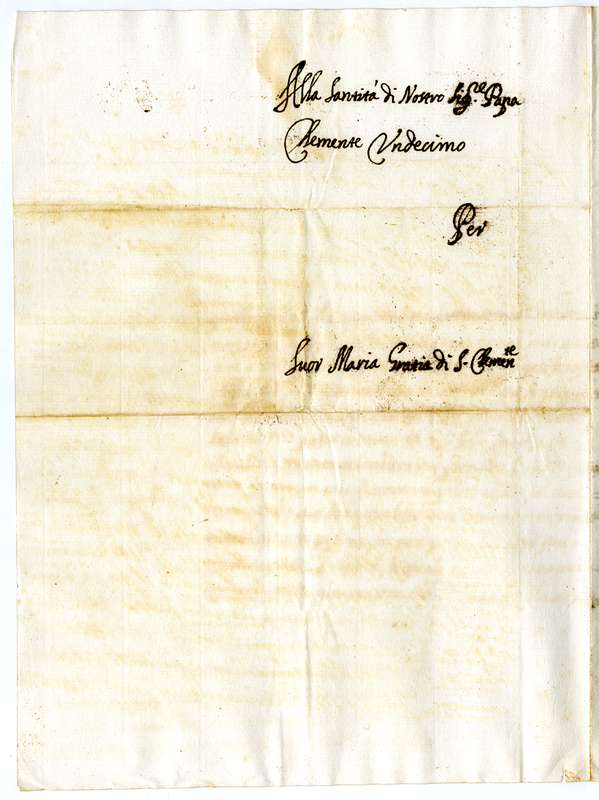 Alla Santità di Nostro Sig.re Papa
Clemente Undecimo
Per
Suor Maria Gratia di S. Clemente